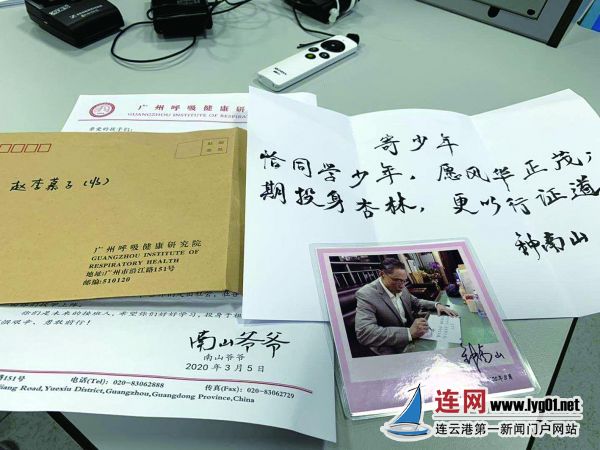 广州呼吸健康研究
GUANGZHOU INSTITUTE OF RESPIRAT
亲爱的孩子们:
赵李熹子(收)
广州呼吸健康研究院
GUANGZHOU INSTITUTE OF
RESPIRATORY HEALTH
地址:广州市沿江路151号
邮编:510120
寄少年
恰同学少年,愿风华正茂;
期投身杏林,更以行证道
钟南山
你们是未来的接班人,希望你们好好学习,投身于
勇敢前行!
南山爷爷
南山爷爷
2020年3月5日
路151号 电话(Tel): 020-83062888 传真(Fax): 020-83062729
jiang Road, Yuexiu District, Guangzhou, Guangdong Province, China
钟南山
连网 www.lyg01.net
连云港第一新闻门户网站